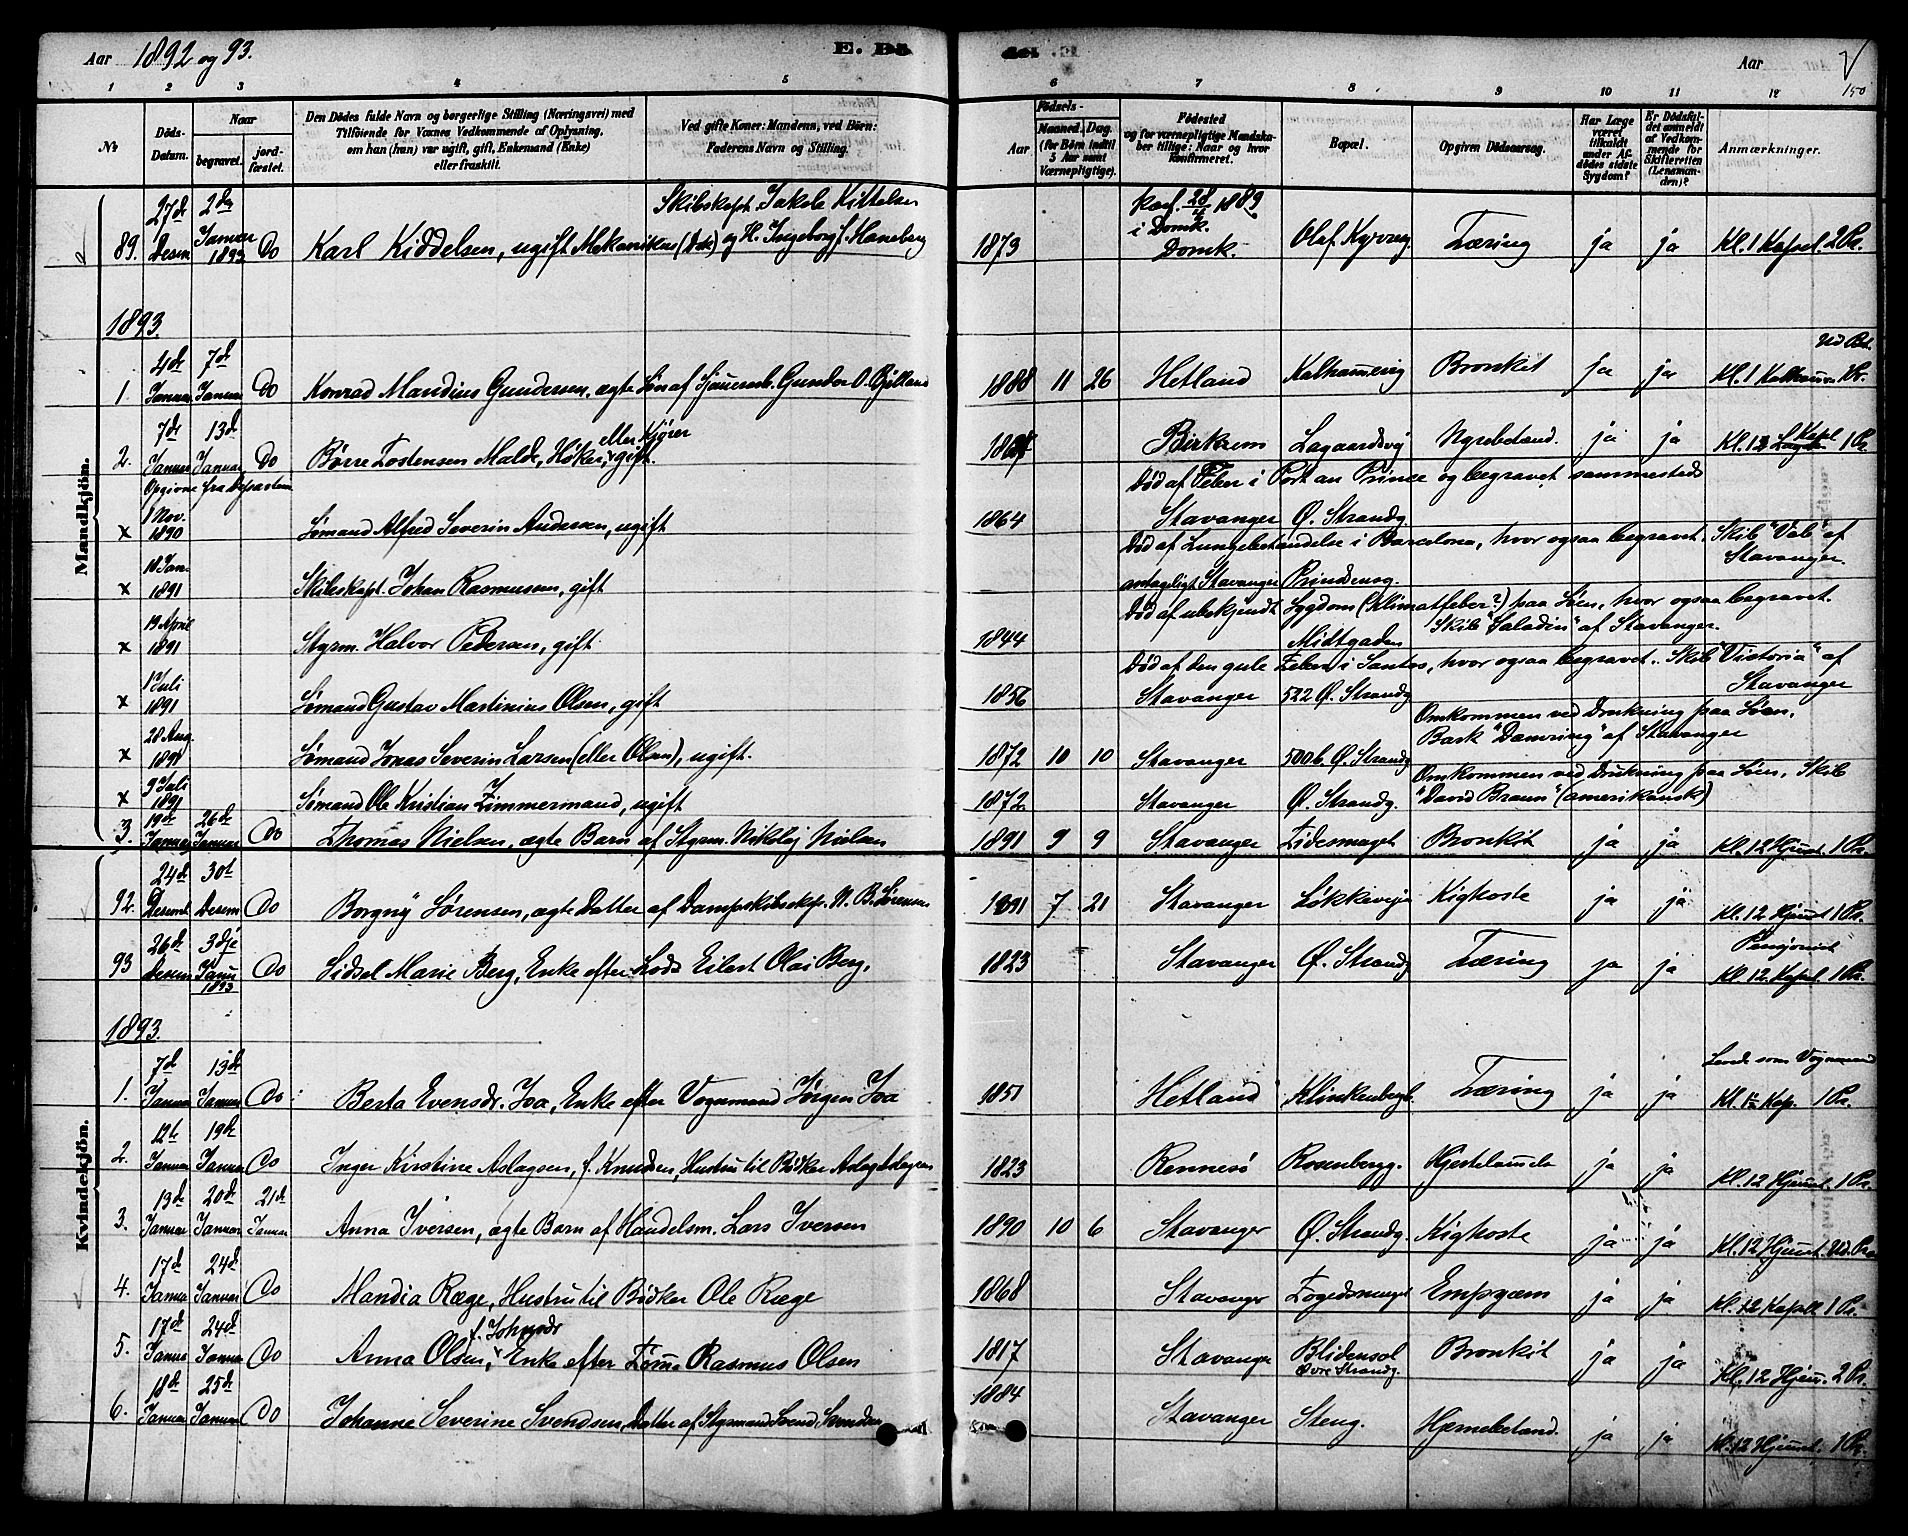 Aar 1892 og 93.
E. Dö
Aar
150
1 2 3 4 5 6 7 8 9 10 11 12
No
Döds-Datum.
Naar
begravet.
jord-fæstet.
Den Dödes fulde Navn og borgerlige Stilling (Næringsvei) med
Tilföiende for Voxnes Vedkommende af Oplysning,
om han (hun) var ugift, gift, Enkemand (Enke)
eller fraskilt.
Ved gifte Koner: Mandens, ved Börn:
Faderens Navn og Stilling.
Födsels-
Aar
Maaned. Dag.
(for Börn indtil
5 Aar samt
Værnepligtige).
Födested
og for værnepligtige Mandska-
ber tillige: Naar og hvor
konfirmeret.
Bopæl.
Opgiven Dödsaarsag.
Har Læge
været
tilkaldt
under Af-
dödes sidste
Sygdom?
Er Dödsfal-
det anmeldt
af Vedkom-
mende for
Skifteretten
(Lensman-
den)?
Anmærkninger.
Mandkjön.
89. 27de Desem 2den Januar 1893 Do Karl Kiddelsen, ugift Mekanikus Skibskapt. Jakob Kittelsen og H. Ingeborg f. Haneberg 1873 Konf. 28/4 1889 i Domk. Domk. Olaf Kyrresg. Tæring ja ja Kl. 1 Kapel. 2 Pr.
1893.
1. 4de Januar 7de Januar Do Konrad Mandius Gundersen, ægte Søn af Gunder O. Bjelland 1888 11 26 Hetland Kalhammerig Bronkit ja ja Kl. 1
2. 7de Januar 13de Januar Do Børre Tostensen Malde, Høker, eller Kjører gift. Birkrem Lagaardsvej Nyrebetænd. ja ja 1 Pr.
Opgivne fra Departem
x 1 Nov. 1890 Sømand Alfred Severin Andersen, ugift 1864 Stavanger Ø. Strandg.
Død af Feber i Port au Prince og begravet sammesteds
x 18 Jan. 1891 Skibskapt. Johan Rasmussen, gift antageligt Stavanger Prindsensg.
Død af Lungebetændelse i Barcelona, hvor ogsaa begravet. Skib "Vab" af Stavanger.
x 13 April 1891 Styrm. Halvor Pedersen, gift 1844 Midtgaden
Død af ubekjendt Sygdom (Klimatfeber?) paa Søen, hvor ogsaa begravet. Skib "Saladin" af Stavanger.
x 1 Juli 1891 Sømand Gustav Martinius Olsen, gift 1856 Stavanger 522 Ø. Strandg.
Død af den gule Feber i Santos, hvor ogsaa begravet. Skib "Victoria" af Stavanger
x 28 Aug. 1891 Sømand Jonas Severin Larsen (eller Olsen), ugift. 1872 10 10 Stavanger 500 b. Ø. Strandg
Omkommen ved Drukning paa Søen. Bark af Stavanger
x 9 Juli 1891 Sømand Ole Kristian Zimmermand, ugift 1872 Stavanger Ø. Strandg.
Omkommen ved Drukning paa Søen. Skib "David Braun" (amerikansk)
3. 19de Januar 26de Januar Do Thomas Nielsen, ægte Barn af Styrm. Nikolaj Nielsen 1891 9 9 Stavanger Bronkit ja ja Kl. 12 Hjemt. 1 Pr.
Kvindekjön.
92. 24de Desemb 30te Desem Do Borgny Sørensen, ægte Datter af Dampskibskpt. N. B. Sørensen 1891 7 21 Stavanger Løkkeveje Kighoste ja ja Kl. 12 Hjemt 1 Pr.
93 26de Desem 3dje Janu 1893 Do Sidsel Marie Berg, Enke efter Lods Eilert Olai Berg. 1823 Stavanger Ø. Strandg Tæring ja ja Pensjonist Kl. 12. Kapel 1 Pr.
1893.
1. 7de Januar 13de Januar Do Berta Evensdr. Joa, Enke efter Vognmand Jørgen Joa 1851 Hetland Klinkenbergb. Tæring ja ja Kl. 12 Kap. 1 Pr.
2. 12te Januar 19de Januar Do Inger Kirstine Aslagsen, f. Knudsen, Hustru til Bødker Aslag Aslagsen 1823 Rennesø Rosenbergg. ja ja Kl. 12 Hjemt. 1 Pr.
3. 13de Januar 20de Januar 21de Januar Anna Iversen, ægte Barn af Handelsm. Lars Iversen 1890 10 6 Stavanger Ø. Strandg. Kighoste ja ja Kl. 12 Hjemt Ud. Præ
4. 17de Januar 24de Januar Do Mandia Ræge, Hustru til Bødker Ole Ræge 1868 Stavanger Empyæm ja ja Kl. 12 Kapell 1 Pr.
5. 17de Januar 24de Januar Do Anna Olsen, f. Johnsdr Enke efter Tømm Rasmus Olsen 1817 Stavanger Blidensol Øvre Strandg. Bronkit ja ja Kl. 12 Hjem. 2 Pr.
6. 18de Januar 25de Januar Do Johanne Severine Svendsen, Datter af Styrmand Svend Svendsen 1884 Stavanger Steng. Hjernebetænd. ja ja Kl. 12 Hjemt. 1 Pr.